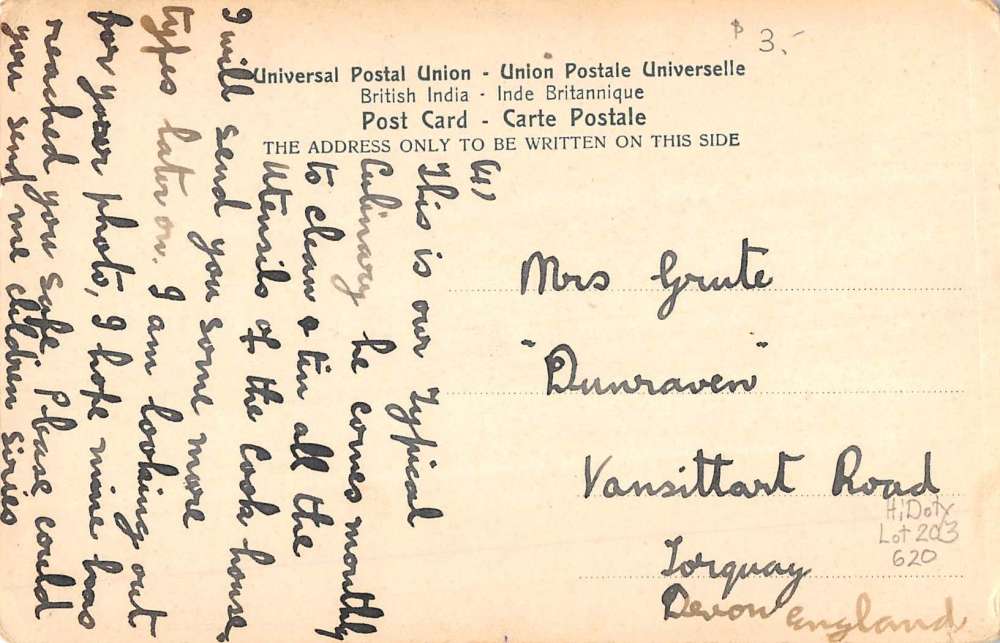 ₱ 3.-
Universal Postal Union - Union Postale Universelle
British India - Inde Britannique
Post Card - Carte Postale
THE ADDRESS ONLY TO BE WRITTEN ON THIS SIDE
This is our Typical
Culinary he comes monthly
to clean & tin all the
Utensils of the Cook house,
I will send you some more
types later on. I am looking out
for your photo, I hope mine has
reached you safe. Please could
you send me children siries
Mrs Grute
"Dunraven"
Vansittart Road
Torquay
Devon England
HiDoty
Lot 203
620